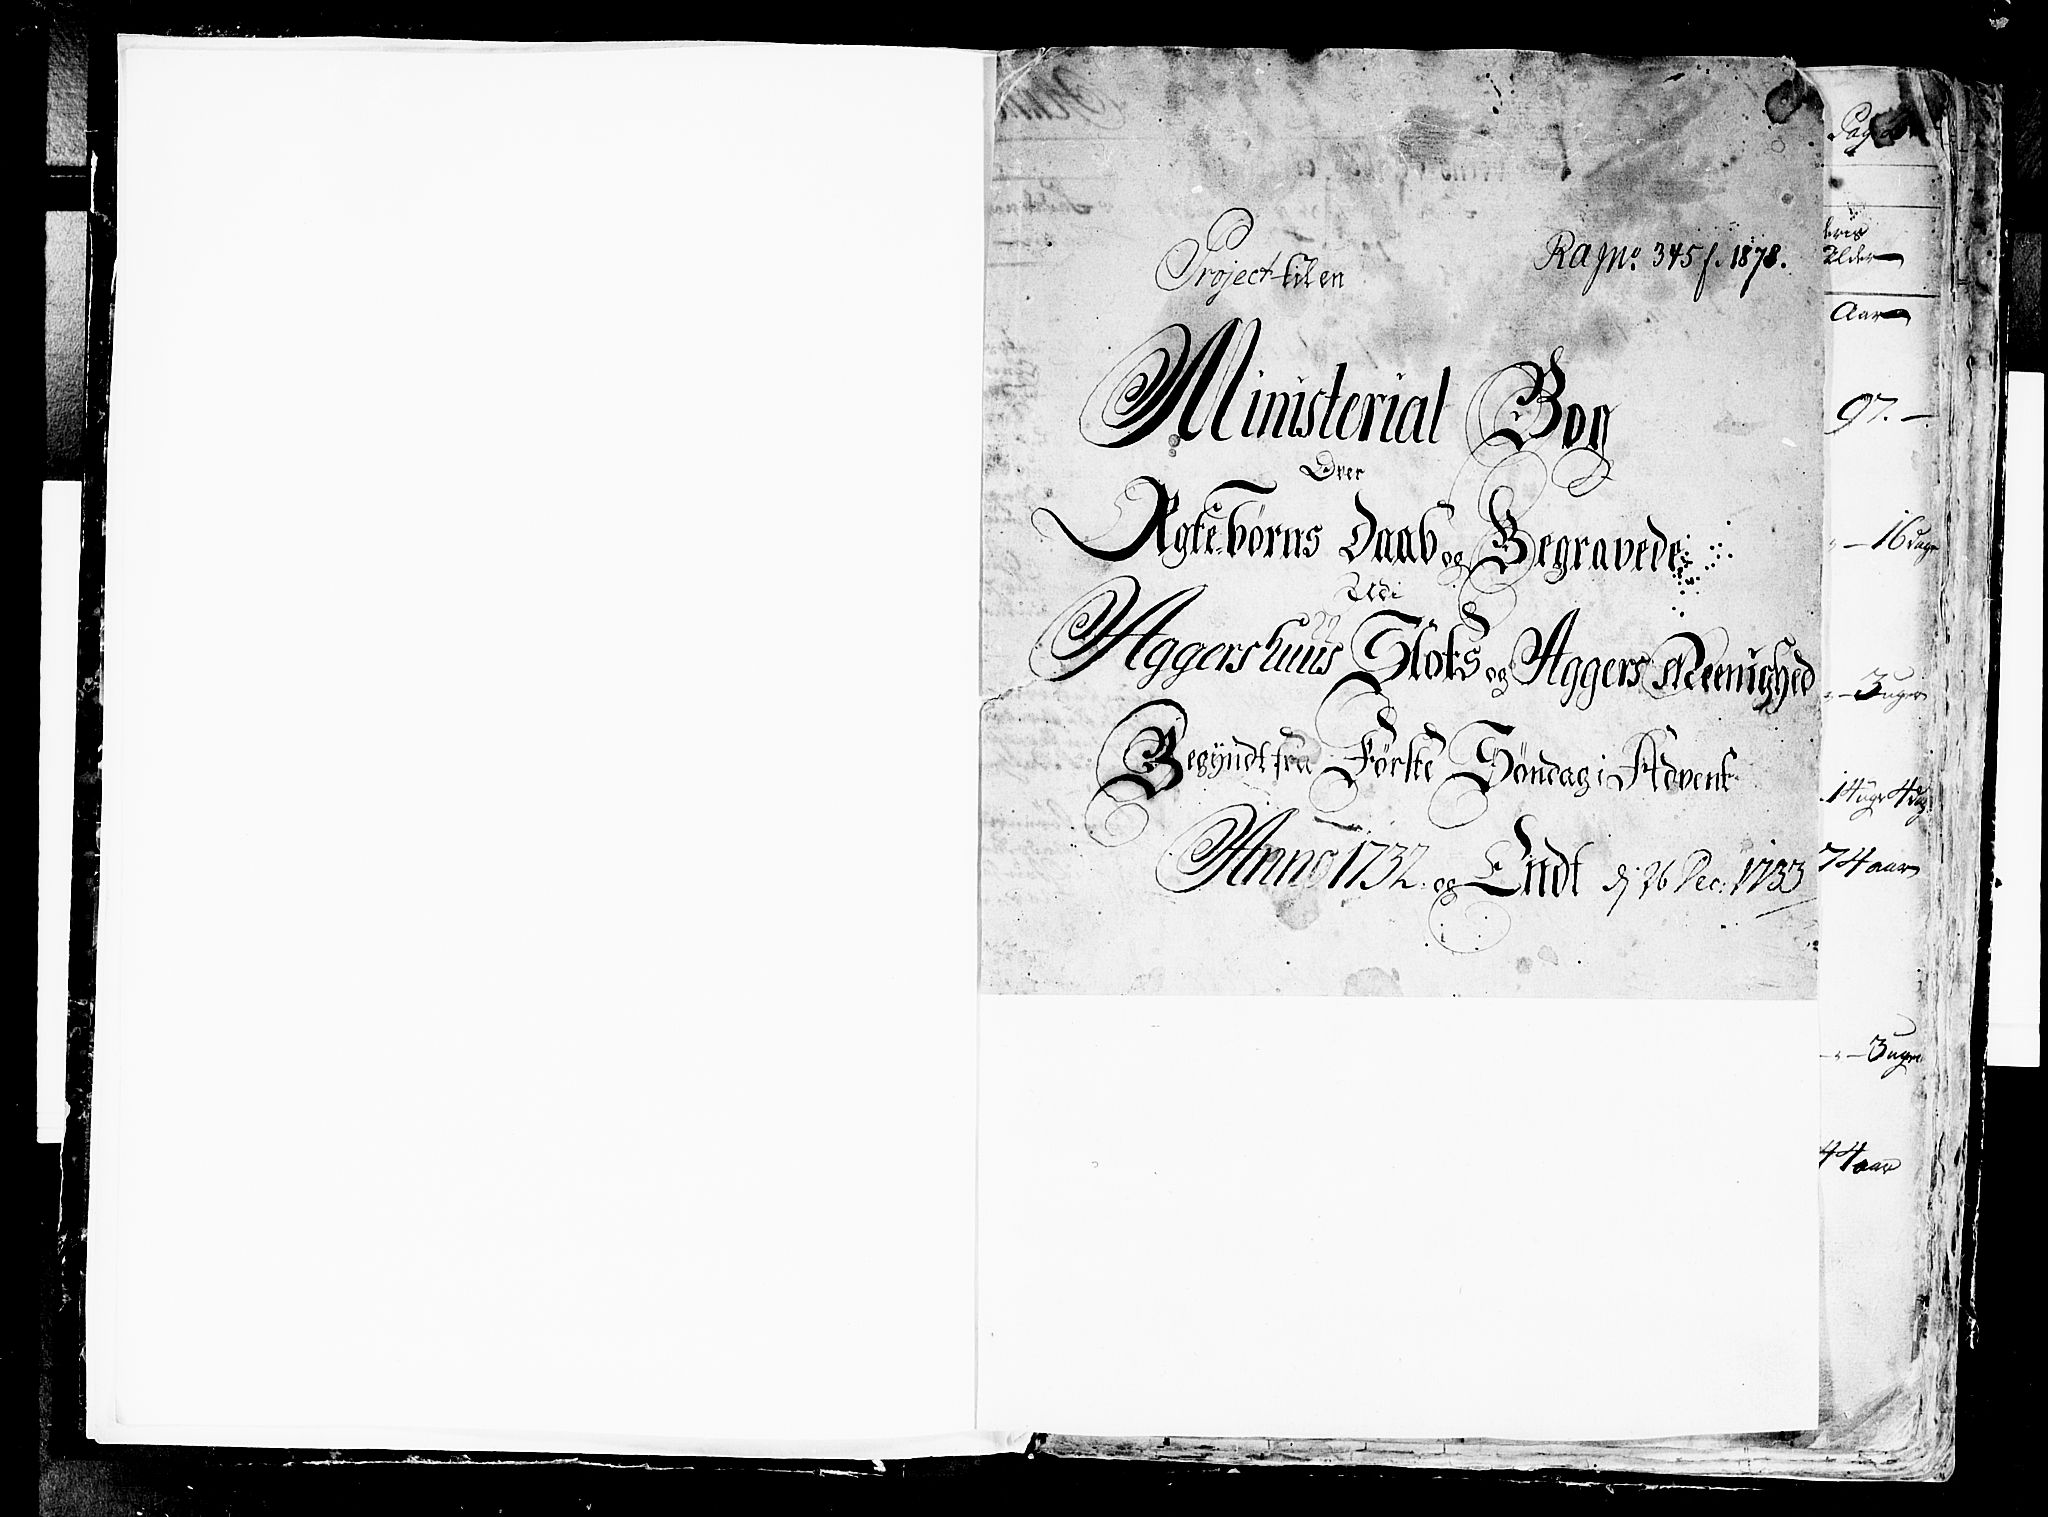 Project til en
RA JNo. 345 f. 1878.
Ministerial Bog
Over
Ægte-børns Daab og Begravede
Udi
Aggershuus Slots og Aggers Meenighed
Begyndt fra Første Søndag i Advent
Anno 1732. og Endt dj 26 Dec: 1733
Pag
Alder
Aar
97. –
– 16 dage
– 3 uger
14 uger 4 dag
74 aar
– 3 uger
44 aar